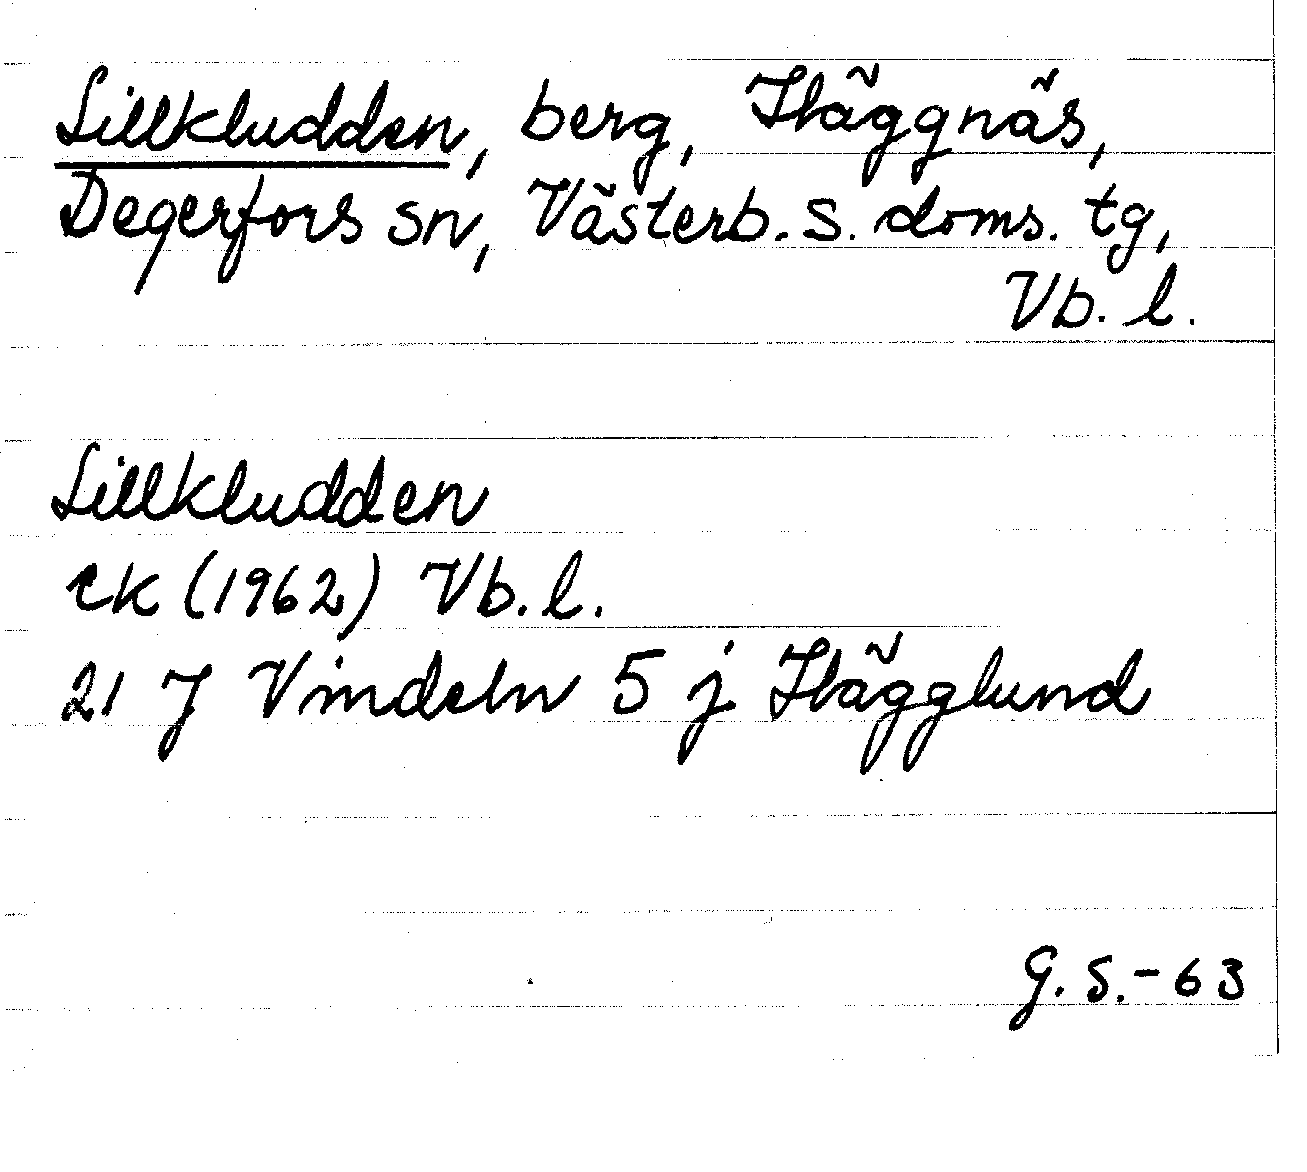 Lillkludden, berg, Häggnäs,
Degerfors sn, Västerb. s. doms. tg,
Vb. l.
Lillkludden
ek (1962) Vb. l.
21 J Vindeln 5 j Hägglund
G. S. - 63